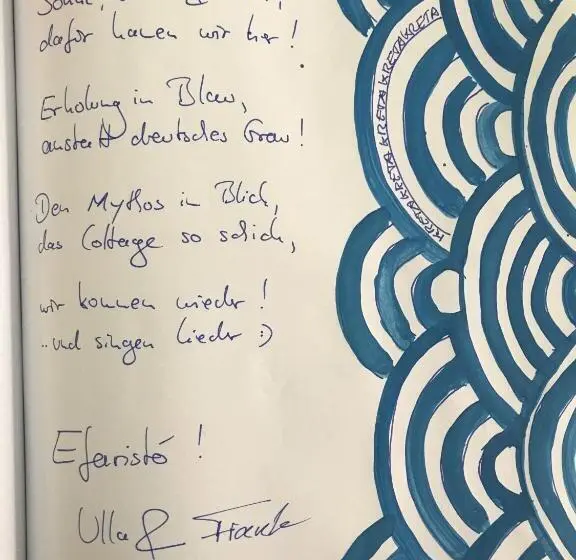 dafür kamen wir her!
Erholung in Blau,
anstatt deutsches Grau!
Den Mythos in Blick,
das Cottage so schick,
wir kommen wieder!
..und singen Lieder :)
Efaristó!
Ulla & Frank
KRETA KRETA KRETA KRETA KRETA